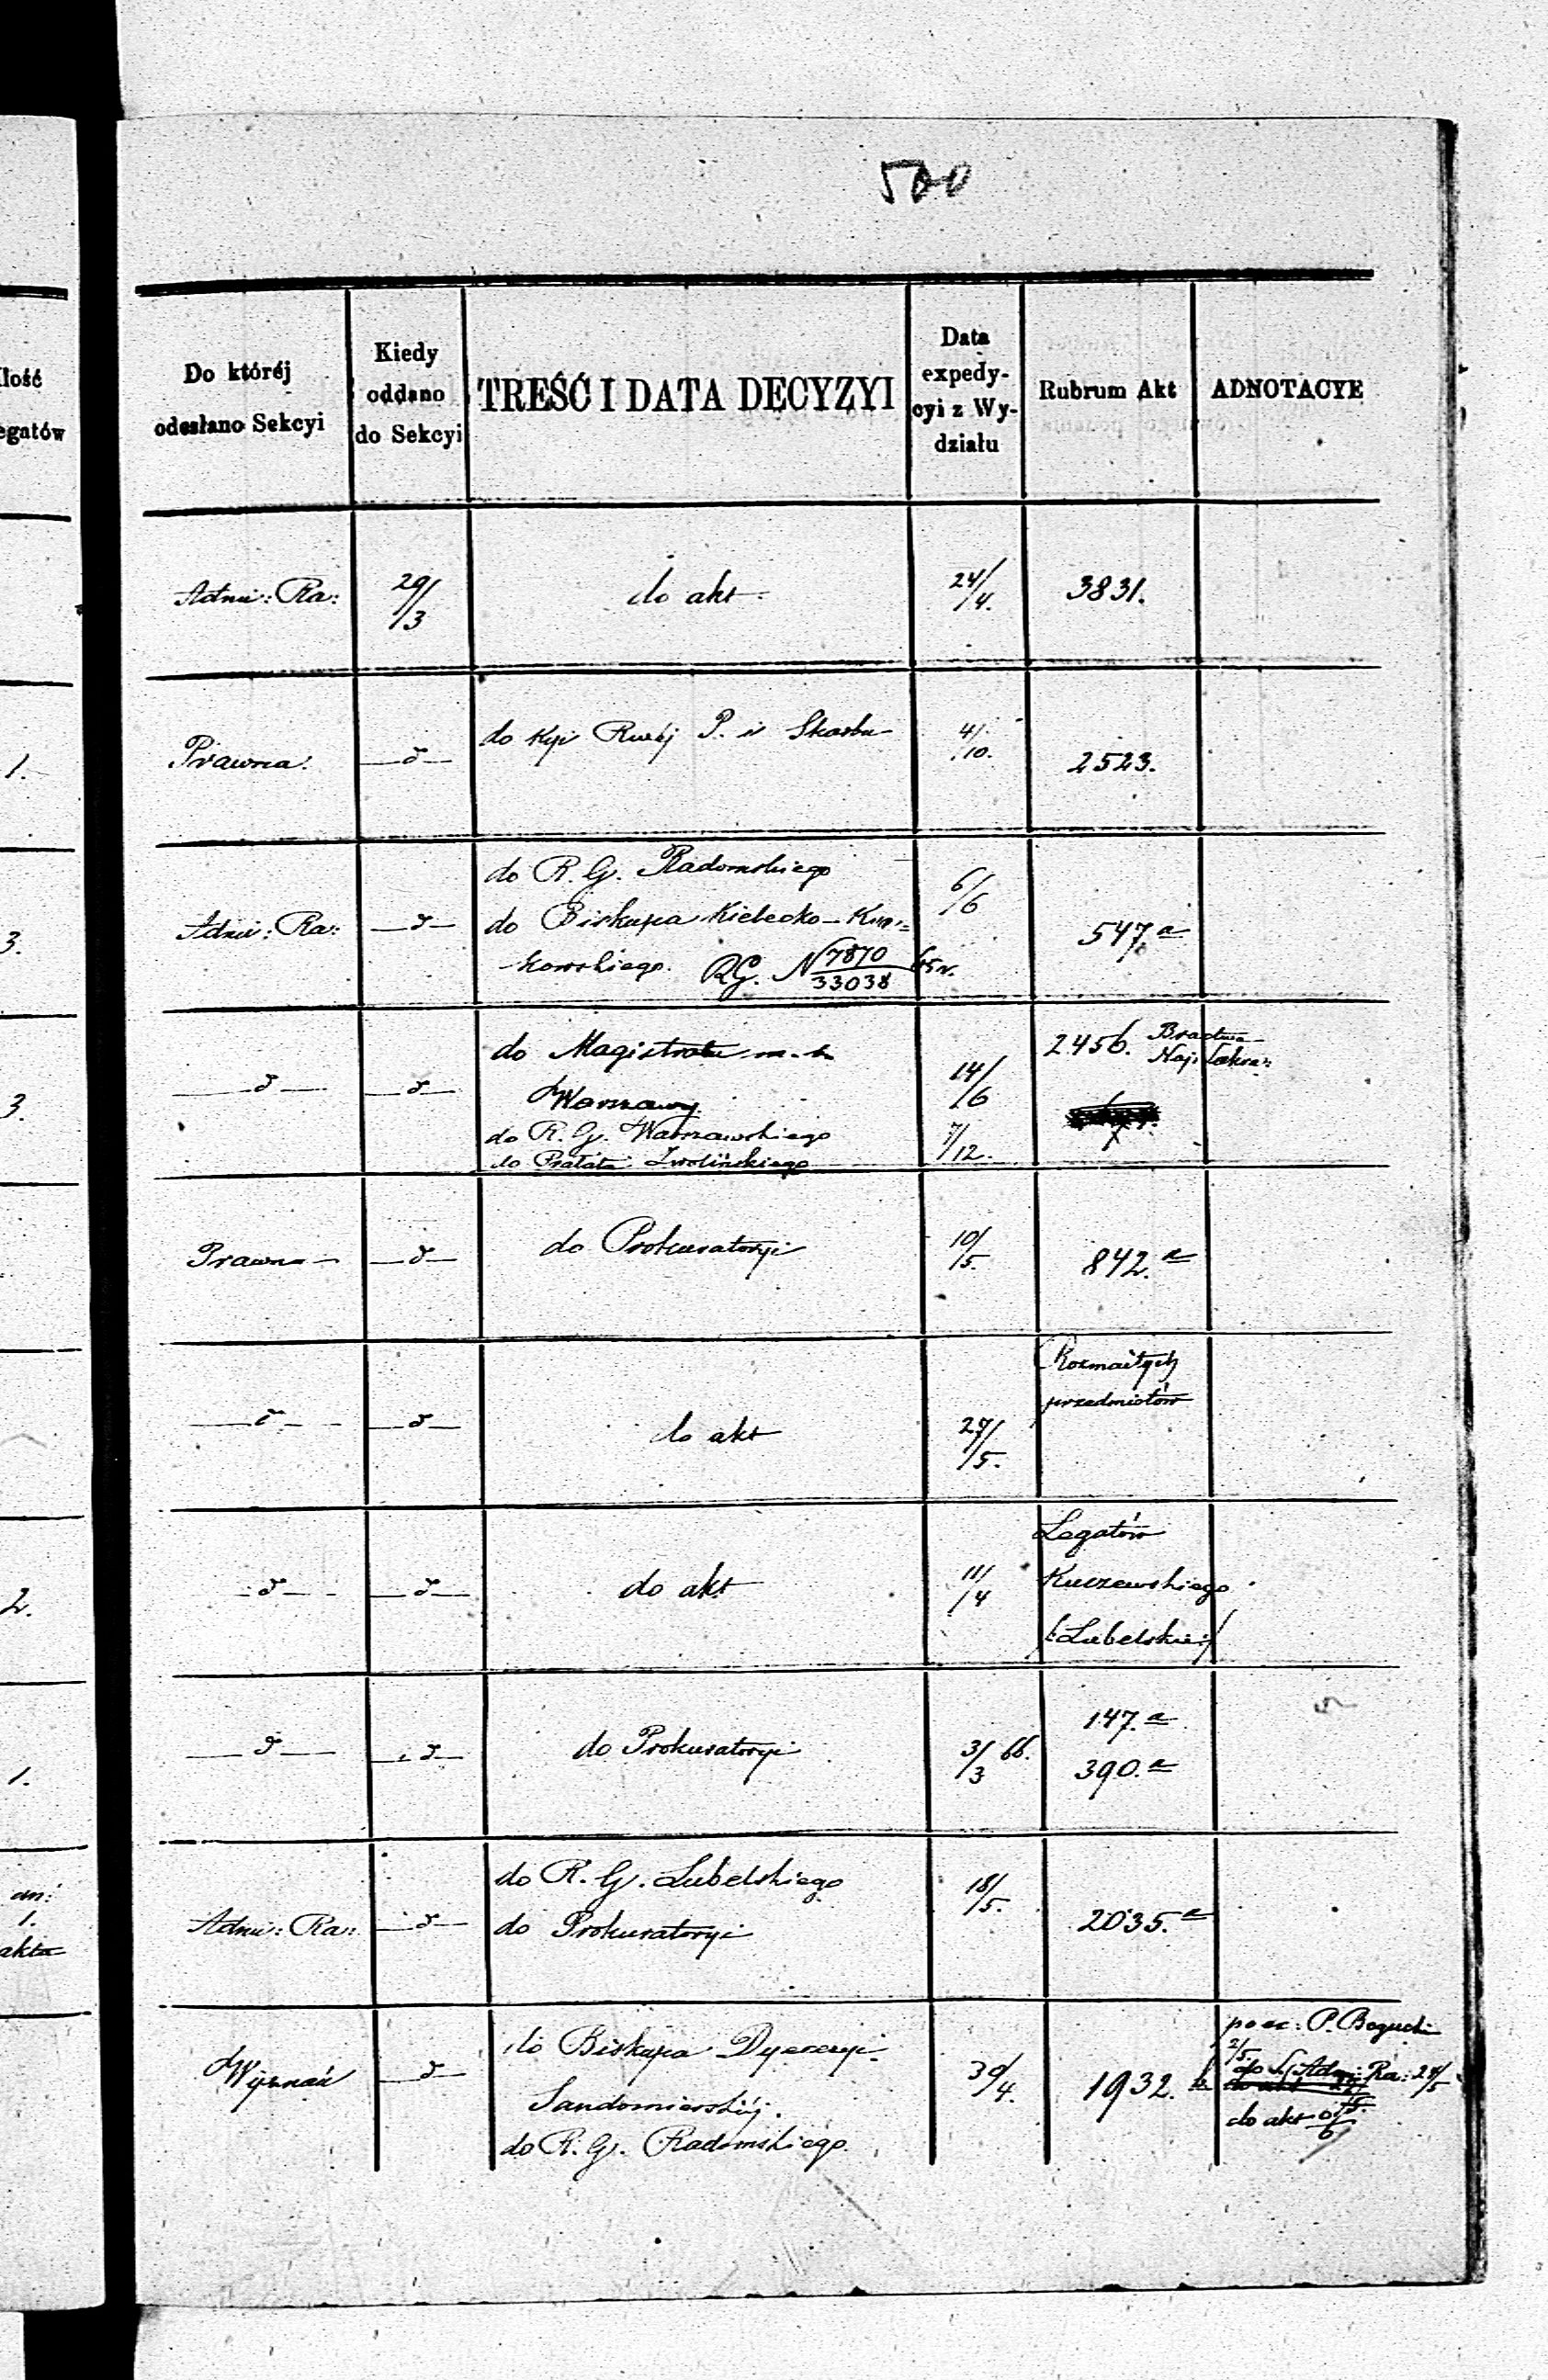 500
Ilość
egatów
Do któréj
odesłano Sekcyi
Kiedy
oddano
do Sekcyi
TREŚĆ I DATA DECYZYI
Data
expedy-
cyi z Wy-
działu
Rubrum Akt
ADNOTACYE
Admi: Ra:
29/3
do akt
24/4.
3831.
1.
Prawna
d
do Kyi Rwéj P. i Skarbu
4/10.
2523.
3.
Admi: Ra:
d
do R. G. Radomskiego
do Biskupa Kielecko-Kra=
kowskiego. RG. N 7870/33038 65 r.
6/6
547.a
3.
d
d
do Magistratu m. 
Warszawy.
do R. G. Warszawskiego
do Prałata Zwolińskiego
14/6
7/12.
2456. Bractwa
Naj: Sakra:
Prawna
d
do Prokuratoryi
10/5.
842.a
d
d
do akt
27/5.
Rozmaitych
przedmiotów
2.
d
d
do akt
11/4
Legatów
Kuczewskiego
/:Lubelskie:/
1.
d
d
do Prokuratoryi
3/3 66.
147.a
390.a
an:
1.
akta
Admi: Ra:
d
do R. G. Lubelskiego
do Prokuratoryi
18/5.
2035.a
Wyznań
d
do Biskupa Dyecezyi
Sandomierskiéj.
do R. G. Radomskiego.
30/4.
1932.
P. Bogucki
2/5.
do S. Admi: Ra: 24/5
do akt